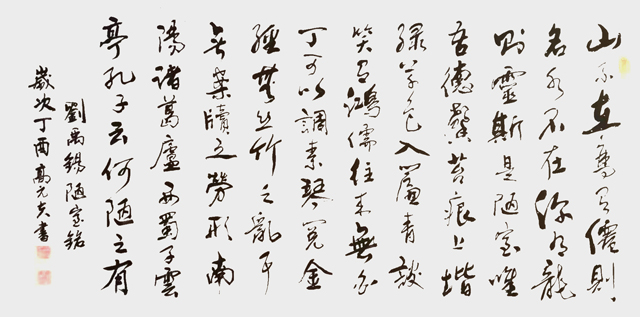 山不在高有僊則
名水不在深有龍
則靈斯是陋室唯
吾德馨苔痕上堦
緑草色入簾青談
笑有鴻儒往來無白
丁可以調素琴閱金
經無絲竹之亂耳
無案牘之勞形南
陽諸葛廬西蜀子雲
亭孔子云何陋之有
劉禹錫陋室銘
歲次丁酉高元書